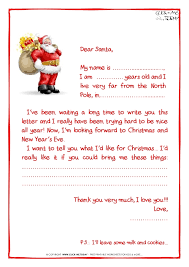 Dear Santa,
My name is ..............
I am .......... years old and I
live very far from the North
Pole, in ..................
I've been waiting a long time to write you
the letter and I really have been trying hard to be nice
all year! Now, I'm looking forward to Christmas and
New Year's Eve.
I want to tell you what I'd like for Christmas... I'd
really like it if you could bring me these things:
Thank you very much, I love you!!!
Love,
P.S. I'll leave some milk and cookies...